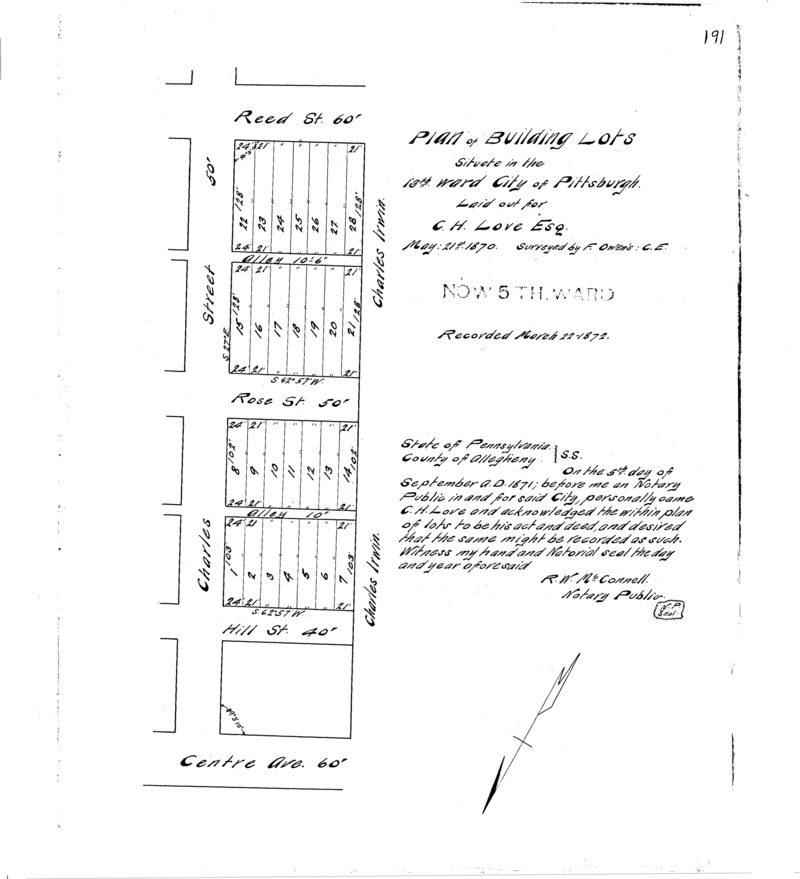 191
Reed St. 60'
24' 21' " " " " 21'
50'
22 128' 23 24 25 26 27 28 128'
24' 21' 21'
Alley 10'6"
24' 21' " " " " 21'
Street
15 128' 16 17 18 19 20 21 128'
S 27° E
24' 21' " " " " 21'
S. 62° 57' W.
Rose St. 50'
24' 21' " " " " 21'
8 102' 9 10 11 12 13 14 102'
24' 21' 21'
Alley 10'
24' 21' 21'
Charles
1 103' 2 3 4 5 6 7 103'
24' 21' " " " " 21'
S. 62° 57' W.
Hill St. 40'
Centre Ave. 60'
Charles Irwin.
Charles Irwin.
Plan of Building Lots
Situate in the
13th. ward City of Pittsburgh.
Laid out for
C. H. Love Esq.
May: 21st. 1870. Surveyed by F. Owens: C. E.
NOW 5 TH. WARD
Recorded March 22-1872.
State of Pennsylvania.
County of Allegheny. } S.S.
On the 5th day of
September A.D. 1871; before me an Notary
Public in and for said City, personally came
C. H. Love and acknowledged the within plan
of lots to be his act and deed, and desired
that the same might be recorded as such.
Witness my hand and Notorial seal the day
and year aforesaid
R. W. McConnell.
Notary Public.
N. P.
Seal.
N